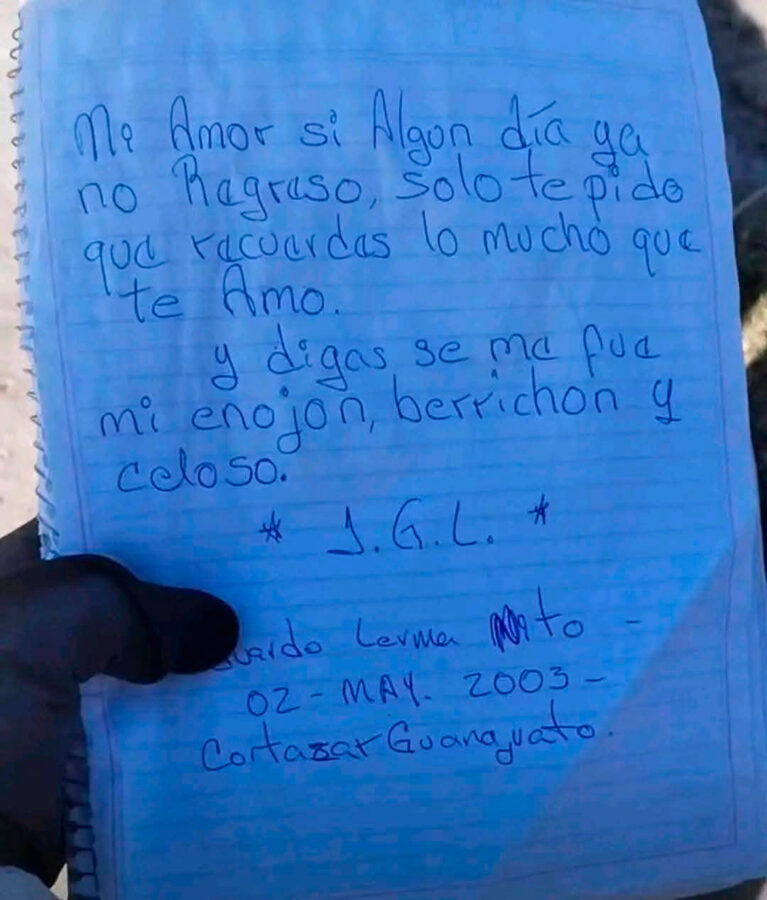 Mi Amor si Algon día ya
no Ragraso, solo te pido
qua racuardas lo mucho que
te Amo.
y digas se ma fua
mi enojon, berrichon y
celoso.
* J.G.L. *
Lerma -
02 - MAY. 2003 -
Cortazar Guanajuato.